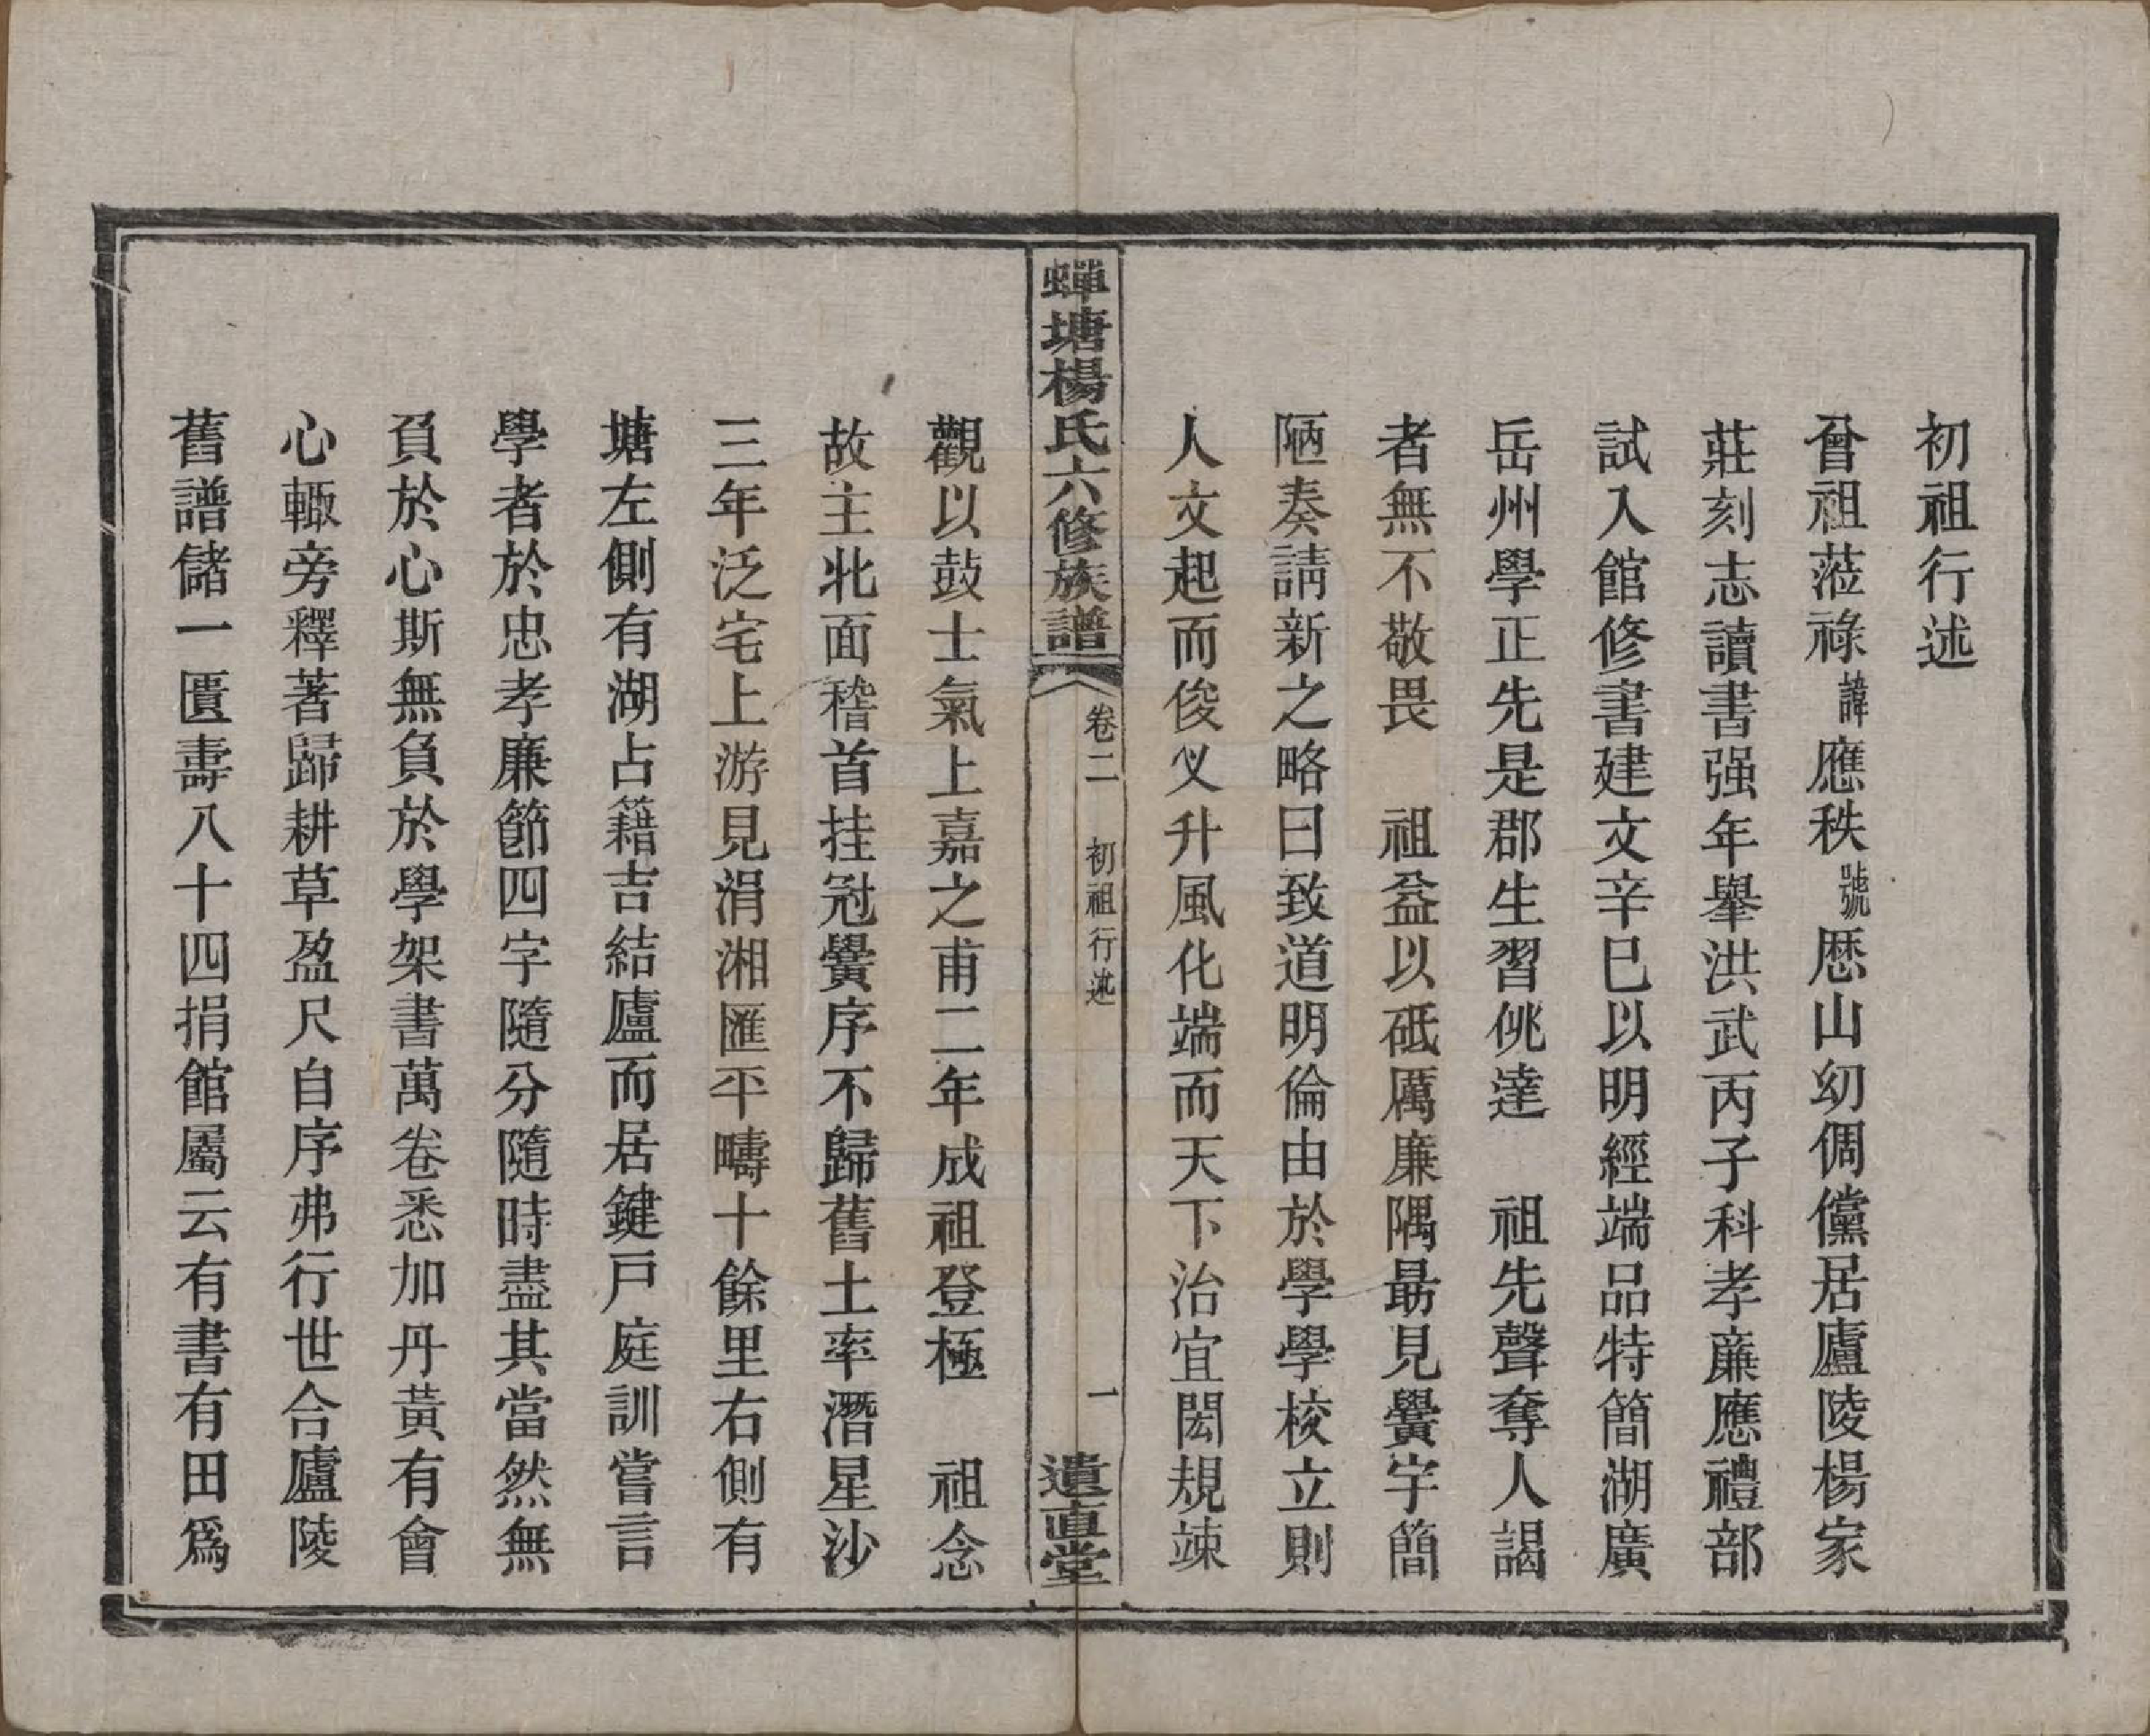 初祖行述
曾祖蒞祿諱應秩號歷山幼倜儻居廬陵楊家
莊刻志讀書强年舉洪武丙子科孝廉應禮部
試入館修書建文辛巳以明經端品特簡湖廣
岳州學正先是郡生習佻達　祖先聲奪人謁
者無不敬畏　祖益以砥厲廉隅最見黌宇簡
陋奏請新之略曰致道明倫由於學學校立則
人文起而俊乂升風化端而天下治宜閎規竦
蟬塘楊氏六修族譜　卷二　初祖行述　一　遺直堂
觀以鼓士氣上嘉之甫二年成祖登極　祖念
故主北面稽首挂冠黌序不歸舊土率潛星沙
三年泛宅上游見涓湘匯平疇十餘里右側有
塘左側有湖占籍吉結廬而居鍵戸庭訓嘗言
學者於忠孝廉節四字隨分隨時盡其當然無
負於心斯無負於學架書萬卷悉加丹黃有會
心輒旁釋著歸耕草盈尺自序弗行世合廬陵
舊譜儲一匱壽八十四捐館屬云有書有田爲